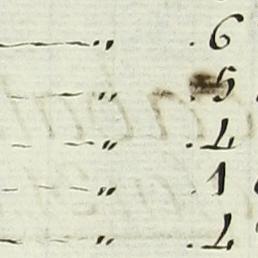 — " . 6
— " . 5
— " . 4
— " . 1
— " . 4